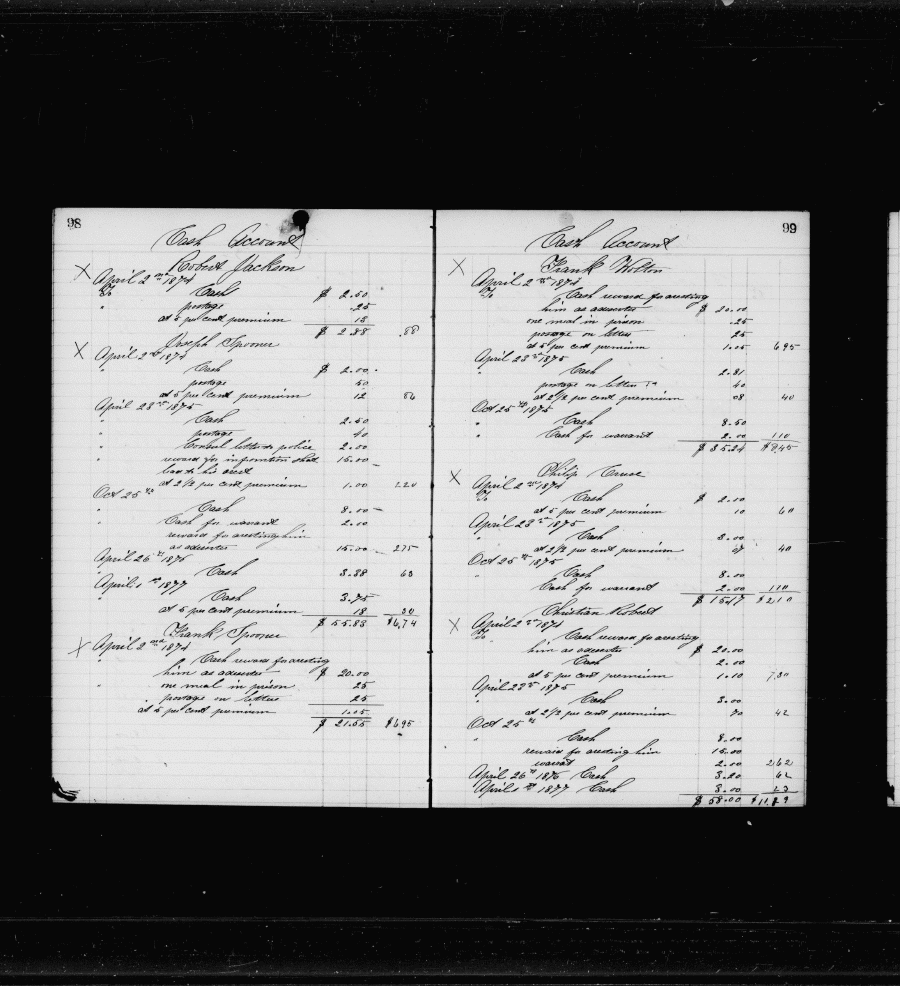 98
Cash Account
Robert Jackson
X April 2nd 1874
To Cash $ 2.50
" postage .25
at 5 per cent premium 13
$ 2.88 .88
Joseph Spooner
X April 2nd 1875
" Cash $ 2.00
postage 50
at 5 per cent premium 12 86
April 23rd 1875
" Cash 2.50
" postage 40
" Consul letter to police 2.00
" reward for information that 15.00
lead to his arrest
at 2 1/2 per cent premium 1.00 2.20
Oct 25th
" Cash 8.00
" Cash for warrant 2.00
" reward for arresting him
as deserter 15.00 2.75
April 26th 1876
" Cash 3.88 63
April 1st 1877
" Cash 3.75
at 5 per cent premium 18 30
$ 55.83 $6,74
Frank Spooner
X April 2nd 1874
" Cash reward for aresting
him as deserter $ 20.00
" one meal in prison 25
" postage on letters 25
at 5 per cent premium 1.05
$ 21.55 $6.95
99
Cash Account
Frank Wolton
X April 2nd 1874
To Cash reward for aresting
him as deserter $ 20.00
one meal in prison .25
postage on letters 25
at 5 per cent premium 1.05 6.95
April 23rd 1875
" Cash 2.81
postage on letter 40
at 2 1/2 per cent premium 08 40
Oct 25th 1875
" Cash 8.50
" Cash for warrant 2.00 1 10
$ 35.24 $8,45
Philip Cruse
X April 2nd 1874
To Cash $ 2.00
at 5 per cent premium 10 60
April 23rd 1875
" Cash 3.00
at 2 1/2 per cent premium 07 40
Oct 25th 1875
" Cash 8.00
Cash for warrant 2.00 1 10
$ 15.17 $2,10
Christian Robert
X April 2nd 1874
To Cash reward for aresting
him as deserter $ 20.00
Cash 2.00
at 5 per cent premium 1.10 7,30
April 23rd 1875
" Cash 3.00
at 2 1/2 per cent premium 70 42
Oct 25th
" Cash 8.00
reward for aresting him 15.00
warrant 2.00 2,62
April 26th 1876 Cash 3.20 62
April 1st 1877 Cash 3.00 23
$ 58.00 $11.19